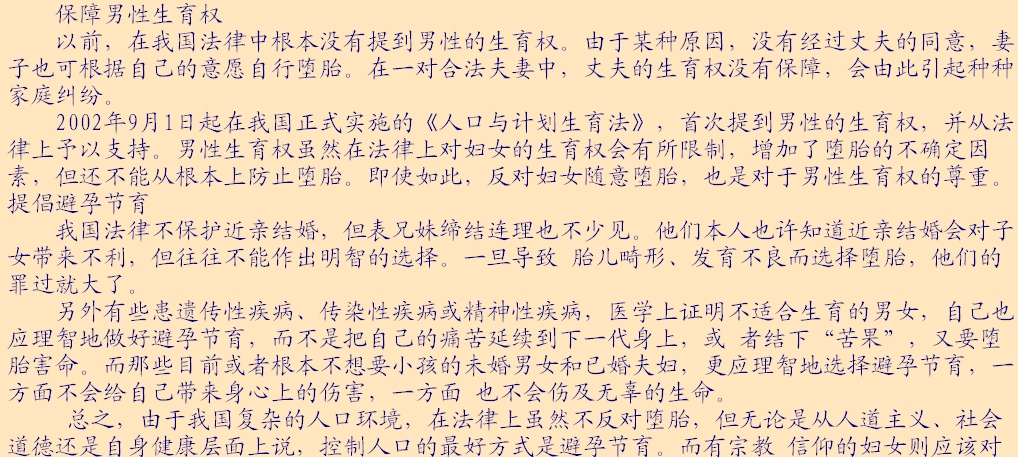 保障男性生育权
以前，在我国法律中根本没有提到男性的生育权。由于某种原因，没有经过丈夫的同意，妻
子也可根据自己的意愿自行堕胎。在一对合法夫妻中，丈夫的生育权没有保障，会由此引起种种
家庭纠纷。
2002年9月1日起在我国正式实施的《人口与计划生育法》，首次提到男性的生育权，并从法
律上予以支持。男性生育权虽然在法律上对妇女的生育权会有所限制，增加了堕胎的不确定因
素，但还不能从根本上防止堕胎。即使如此，反对妇女随意堕胎，也是对于男性生育权的尊重。
提倡避孕节育
我国法律不保护近亲结婚，但表兄妹缔结连理也不少见。他们本人也许知道近亲结婚会对子
女带来不利，但往往不能作出明智的选择。一旦导致 胎儿畸形、发育不良而选择堕胎，他们的
罪过就大了。
另外有些患遗传性疾病、传染性疾病或精神性疾病，医学上证明不适合生育的男女，自己也
应理智地做好避孕节育，而不是把自己的痛苦延续到下一代身上，或 者结下“苦果”，又要堕
胎害命。而那些目前或者根本不想要小孩的未婚男女和已婚夫妇，更应理智地选择避孕节育，一
方面不会给自己带来身心上的伤害，一方面 也不会伤及无辜的生命。
总之，由于我国复杂的人口环境，在法律上虽然不反对堕胎，但无论是从人道主义、社会
道德还是自身健康层面上说，控制人口的最好方式是避孕节育。而有宗教 信仰的妇女则应该对